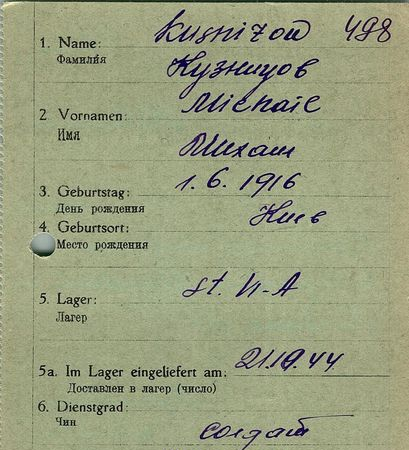 Kusnizow 498
1. Name:
Фамилия
Кузницов
Michail
2 Vornamen:
Имя
Михаил
3. Geburtstag: 1. 6. 1916
День рождения
4. Geburtsort: Киев
Место рождения
5. Lager: St. VI-A
Лагерь
5a. Im Lager eingeliefert am: 21.10.44
Доставлен в лагерь (число)
6. Dienstgrad:
Чин
солдат